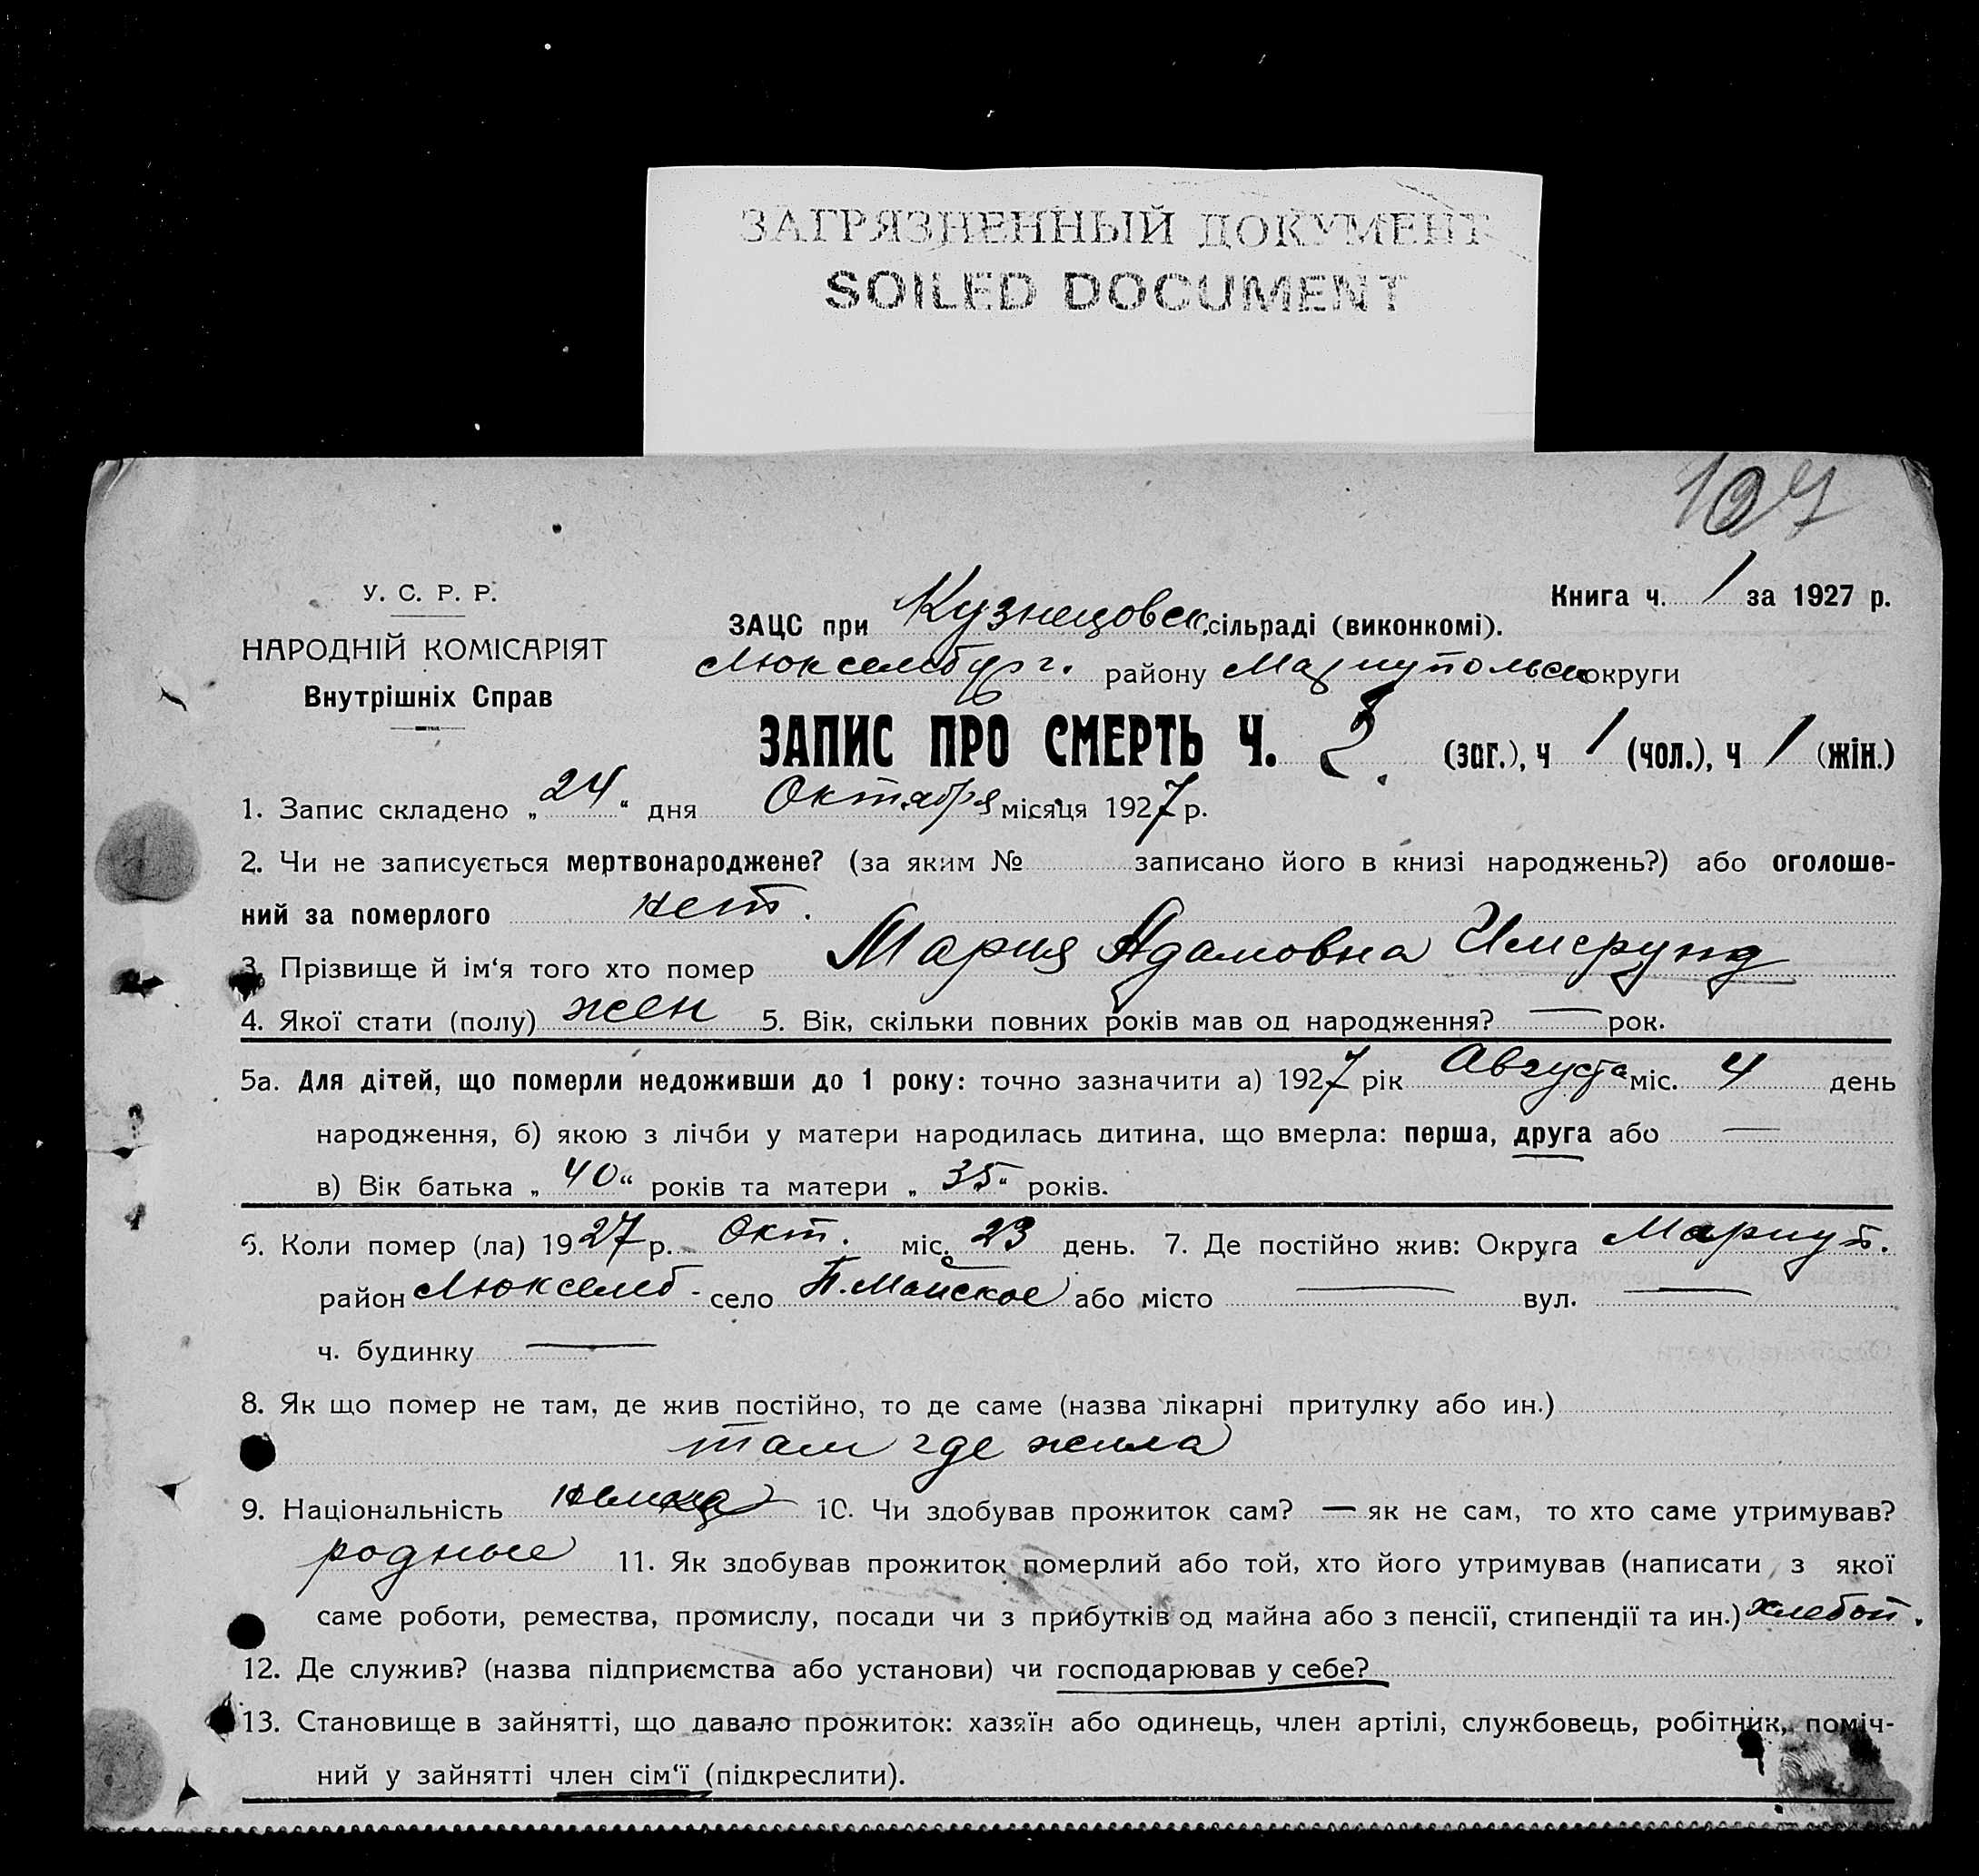 ЗАГРЯЗНЕННЫЙ ДОКУМЕНТ
SOILED DOCUMENT
107
У. С. Р. Р.
НАРОДНІЙ КОМІСАРІЯТ
Внутрішніх Справ
Книга ч. 1 за 1927 р.
ЗАЦС при Кузнецовск. сільраді (виконкомі).
Люксембург. району Мариупольск округи
ЗАПИС ПРО СМЕРТЬ Ч. 2. (заг.), ч 1 (чол.), ч 1 (жін.)
1. Запис складено „24“ дня Октября місяця 1927 р.
2. Чи не записується мертвонароджене? (за яким № записано його в книзі народжень?) або оголоше-
ний за померлого нет.
3. Прізвище й ім‘я того хто помер Мария Адамовна
4. Якої стати (полу) жен 5. Вік, скільки повних років мав од народження? — рок.
5а. Для дітей, що померли недоживши до 1 року: точно зазначити а) 1927 рік Августа міс. 4 день
народження, б) якою з лічби у матери народилась дитина, що вмерла: перша, друга або —
в) Вік батька „40“ років та матери „35“ років.
6. Коли помер (ла) 1927 р. Окт. міс. 23 день. 7. Де постійно жив: Округа Мариуп.
район Люксемб - село П. Майское або місто — вул. —
ч. будинку —
8. Як що помер не там, де жив постійно, то де саме (назва лікарні притулку або ин.)
там где жила
9. Національність немка 10. Чи здобував прожиток сам? — як не сам, то хто саме утримував?
родные 11. Як здобував прожиток померлий або той, хто його утримував (написати, з якої
саме роботи, ремества, промислу, посади чи з прибутків од майна або з пенсії, стипендії та ин.) хлебоп.
12. Де служив? (назва підприємства або установи) чи господарював у себе?
13. Становище в зайнятті, що давало прожиток: хазяїн або одинець, член артілі, службовець, робітник, поміч-
ний у зайнятті член сім‘ї (підкреслити).